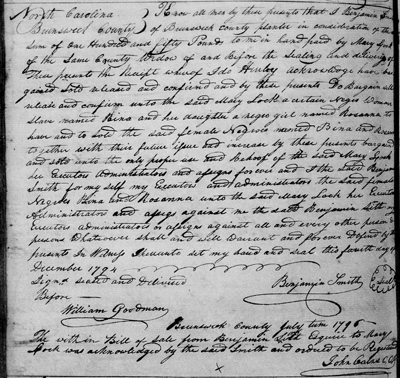 North Carolina Know all men by these presents that I Benjamin Smith
Brunswick County of Brunswick County planter in consideration of the
sum of one Hundred and fifty Pounds to me in hand paid by Mary Lock
of the Same County Widow of and before the Sealing and delivery of
These presents the Receipt whereof I do hereby acknowledge have bar
gained Sold released and confirmed and by these presents Do bargain sell
release and confirm unto the said Mary Lock a certain Negro Woman
Slave named Bina and her daughter a negro girl named Rosanna to
have and to hold the said female Negroes named Bina and Rosanna
together with their future issue and increase by these presents bargained
and sold unto the only proper use and behoof of the said Mary Lock
her Executors administrators and assigns forever and I the said Benjamin
Smith for my self my Executors and administrators the said female
Negroes Bina and Rosanna unto the said Mary Lock her Executors
Administrators and assigns against me the said Benjamin Smith my
Executors administrators or assigns against all and every other person or
persons Whatsoever shall and will Warrant and forever Defend by these
presents In Witness Whereunto set my hand and seal this fourth day of
December 1794
Signd sealed and delivered Benjamin Smith Seal
Before
William Goodman
Brunswick County July term 1795
The within Bill of sale from Benjamin Smith Esquire to Mary
Lock was acknowledged by the said Smith and ordered to be Registered
John